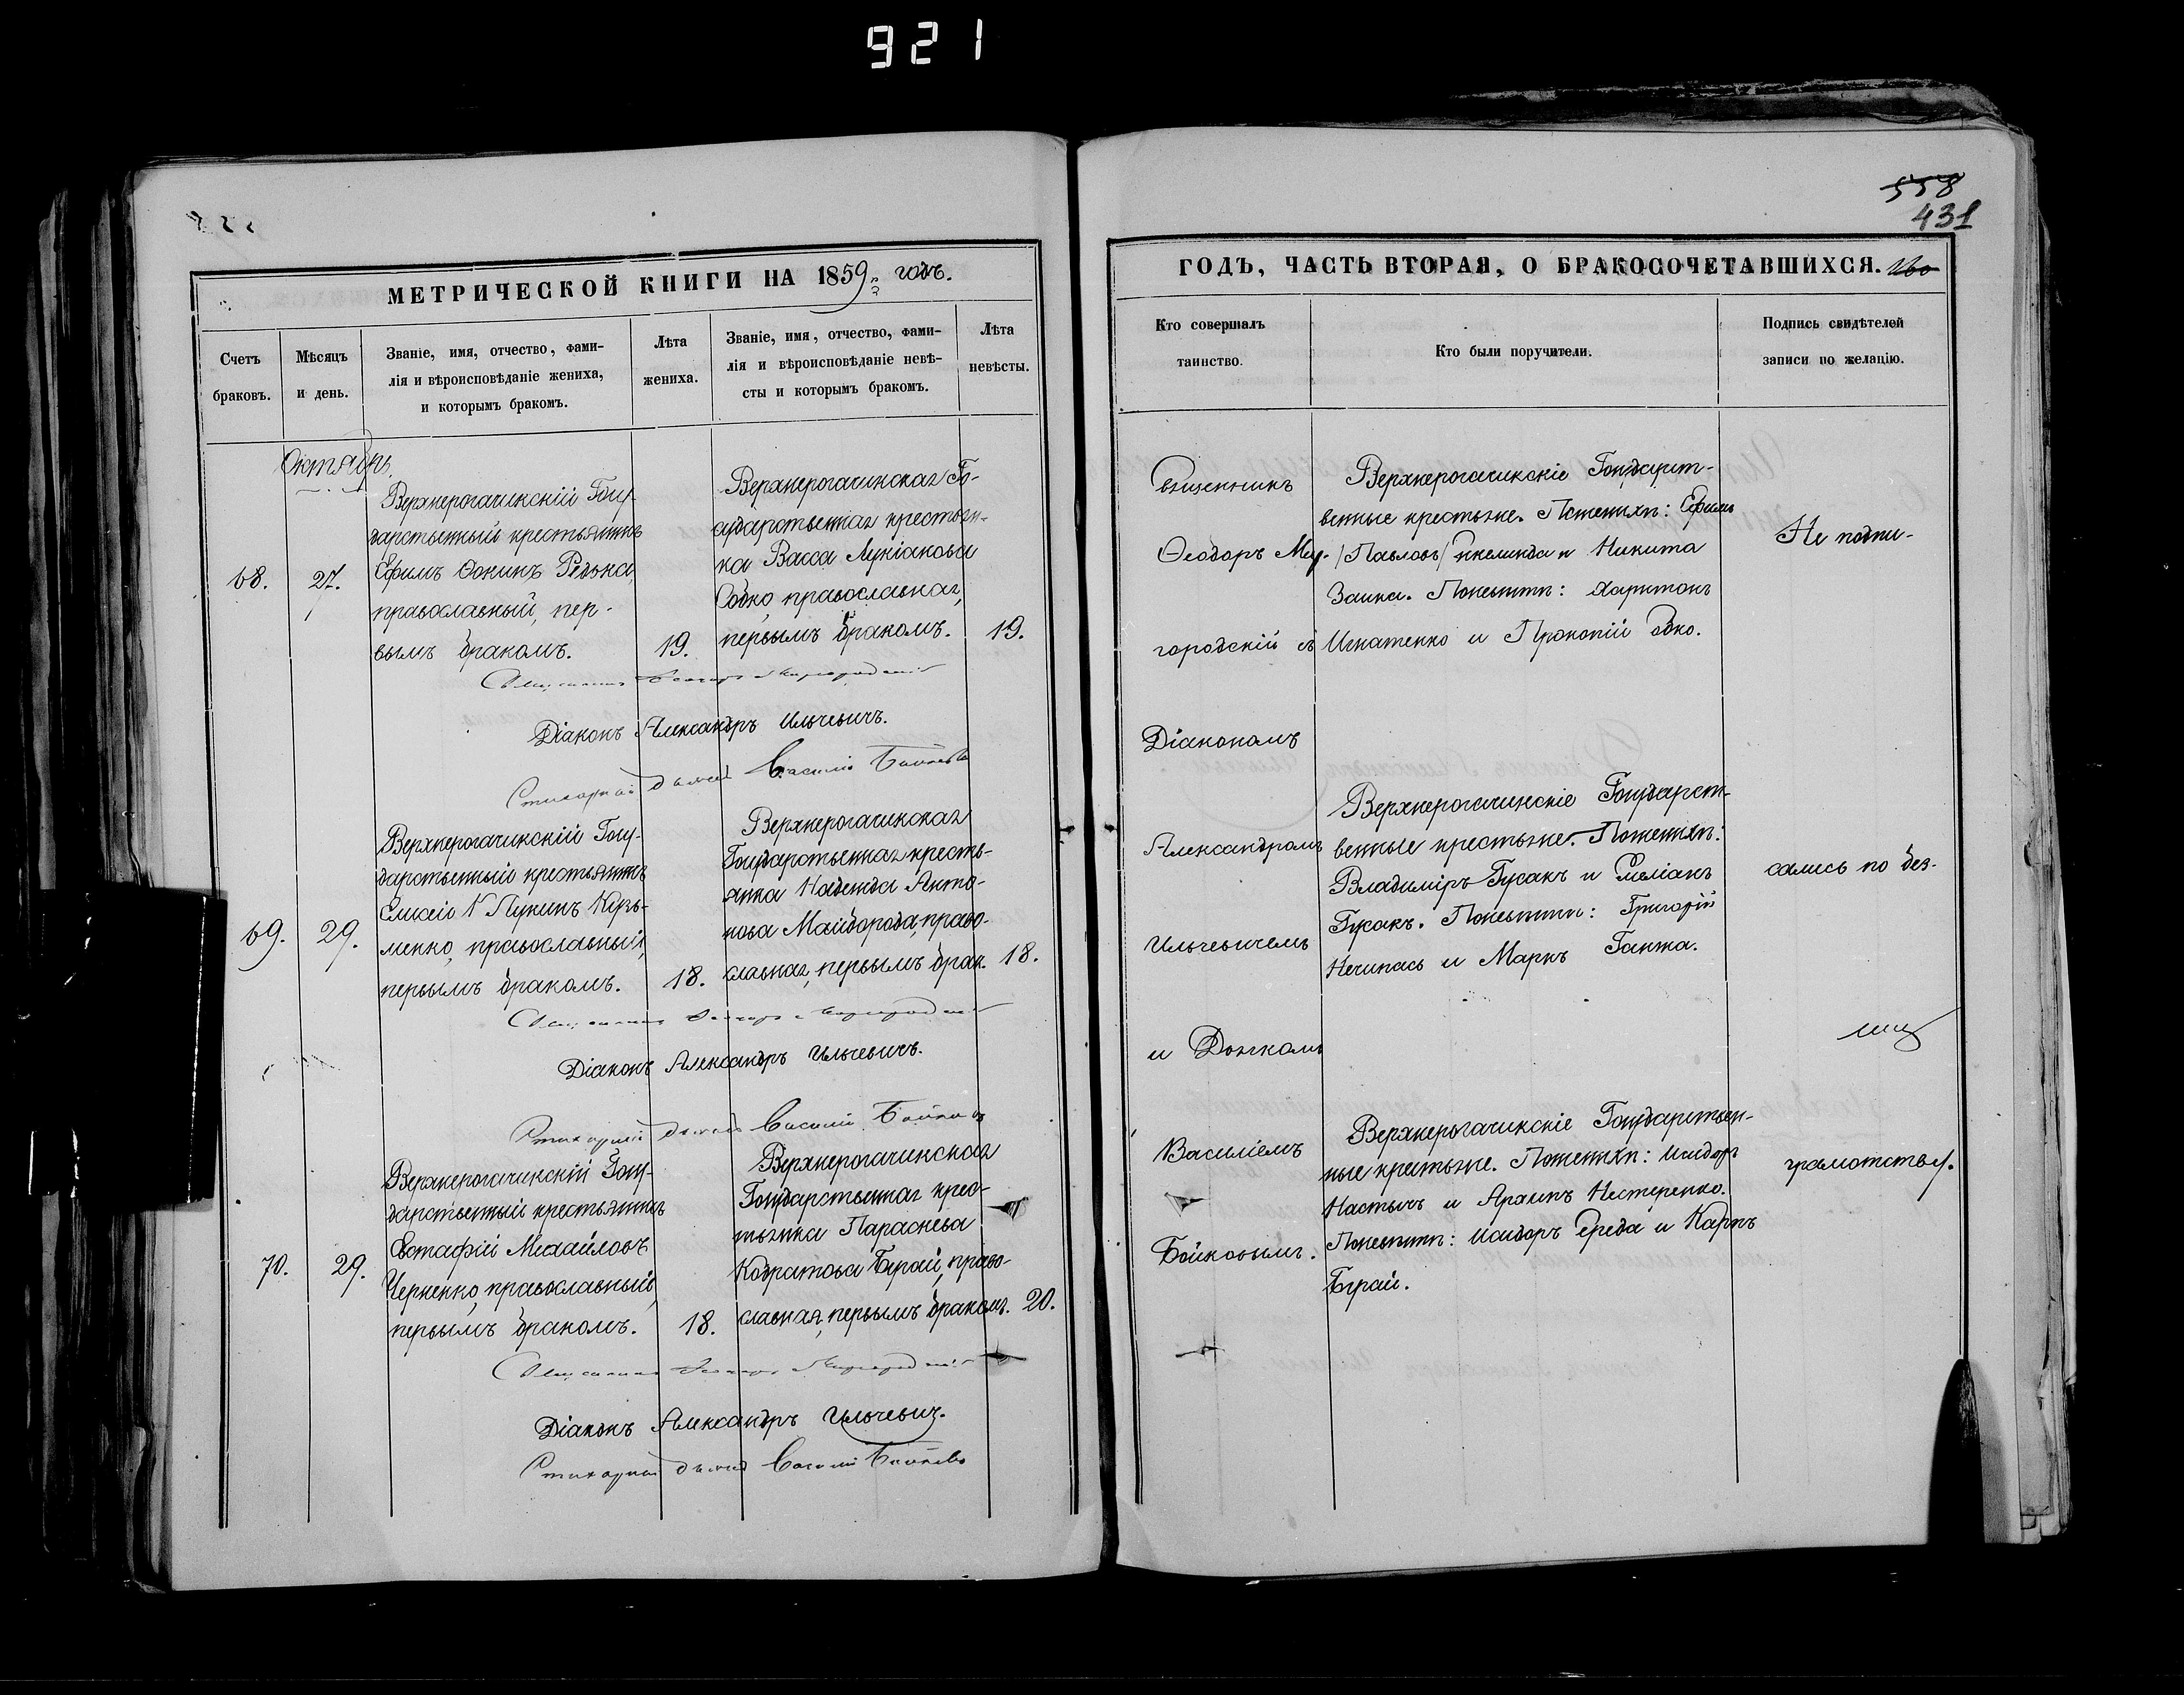 921
558
431
МЕТРИЧЕСКОЙ КНИГИ НА 1859 годъ.
Счетъ браковъ.
Мѣсяцъ и день.
Званіе, имя, отчество, фами-
лія и вѣроисповѣданіе жениха,
и которымъ бракомъ.
Лѣта
жениха.
Званіе, имя, отчество, фами-
лія и вѣроисповѣданіе невѣ-
сты и которымъ бракомъ.
Лѣта
невѣсты.
Октябрь
68.
27.
Верхнерогачикскій Госу-
дарственный крестьянинъ
Ефимъ Ѳокинъ Редька,
православный, пер-
вымъ бракомъ.
19.
Верхнерогачикская Го-
сударственная крестьян-
ка Васса Лукіанова
Собко, православная,
первымъ бракомъ.
19.
Священникъ Ѳеодоръ Миргородскій
Діаконъ Александръ Ильчевичъ.
Стихарный дьячек Василій Бойковъ
69.
29.
Верхнерогачикскій Госу-
дарственный крестьянинъ
менко, православный,
первымъ бракомъ.
18.
Верхнерогачикская
Государственная кресть-
янка Надежда Анто-
нова Майборода, право-
славная, первымъ брак.
18.
Священникъ Ѳеодоръ Миргородскій
Діаконъ Александръ Ильчевичъ.
Стихарный дьячек Василій Бойковъ
70.
29.
Верхнерогачикскій Госу-
дарственный крестьянинъ
Евстафій Михайловъ
Черненко, православный,
первымъ бракомъ.
18.
Верхнерогачикская
Государственная крес-
тьянка Параскева
Кодратова Бурай, право-
славная, первымъ бракомъ.
20.
Священникъ Ѳеодоръ Миргородскій
Діаконъ Александръ Ильчевич.
Стихарный дьячек Василій Бойковъ
ГОДЪ, ЧАСТЬ ВТОРАЯ, О БРАКОСОЧЕТАВШИХСЯ.
Кто совершалъ
таинство.
Кто были поручители.
Подпись свидѣтелей
записи по желанію.
Священникъ
Ѳеодоръ Мир-
городскій съ
Діакономъ
Александромъ
Ильчевичемъ
и Дьячкомъ
Василіемъ
Бойковымъ.
Верхнерогачикскіе Государст-
венные крестьяне. По женихѣ: Ефимъ
/Павловъ/ и Никита
Заика. По невѣстѣ: Харитонъ
Игнатенко и Прокопій Собко.
Верхнерогачикскіе Государст-
венные крестьяне. По женихѣ:
Владиміръ Гусакъ и Емеліанъ
Гусакъ. По невѣстѣ: Григорій
Нечипась и Маркъ Ганжа.
Верхнерогачикскіе Государствен-
ные крестьяне. По женихѣ: Исидоръ
и Архипъ Нестеренко.
По невѣстѣ: Исидоръ Середа и Карпъ
Бурай.
Не подпи-
сались по без-
грамотству.